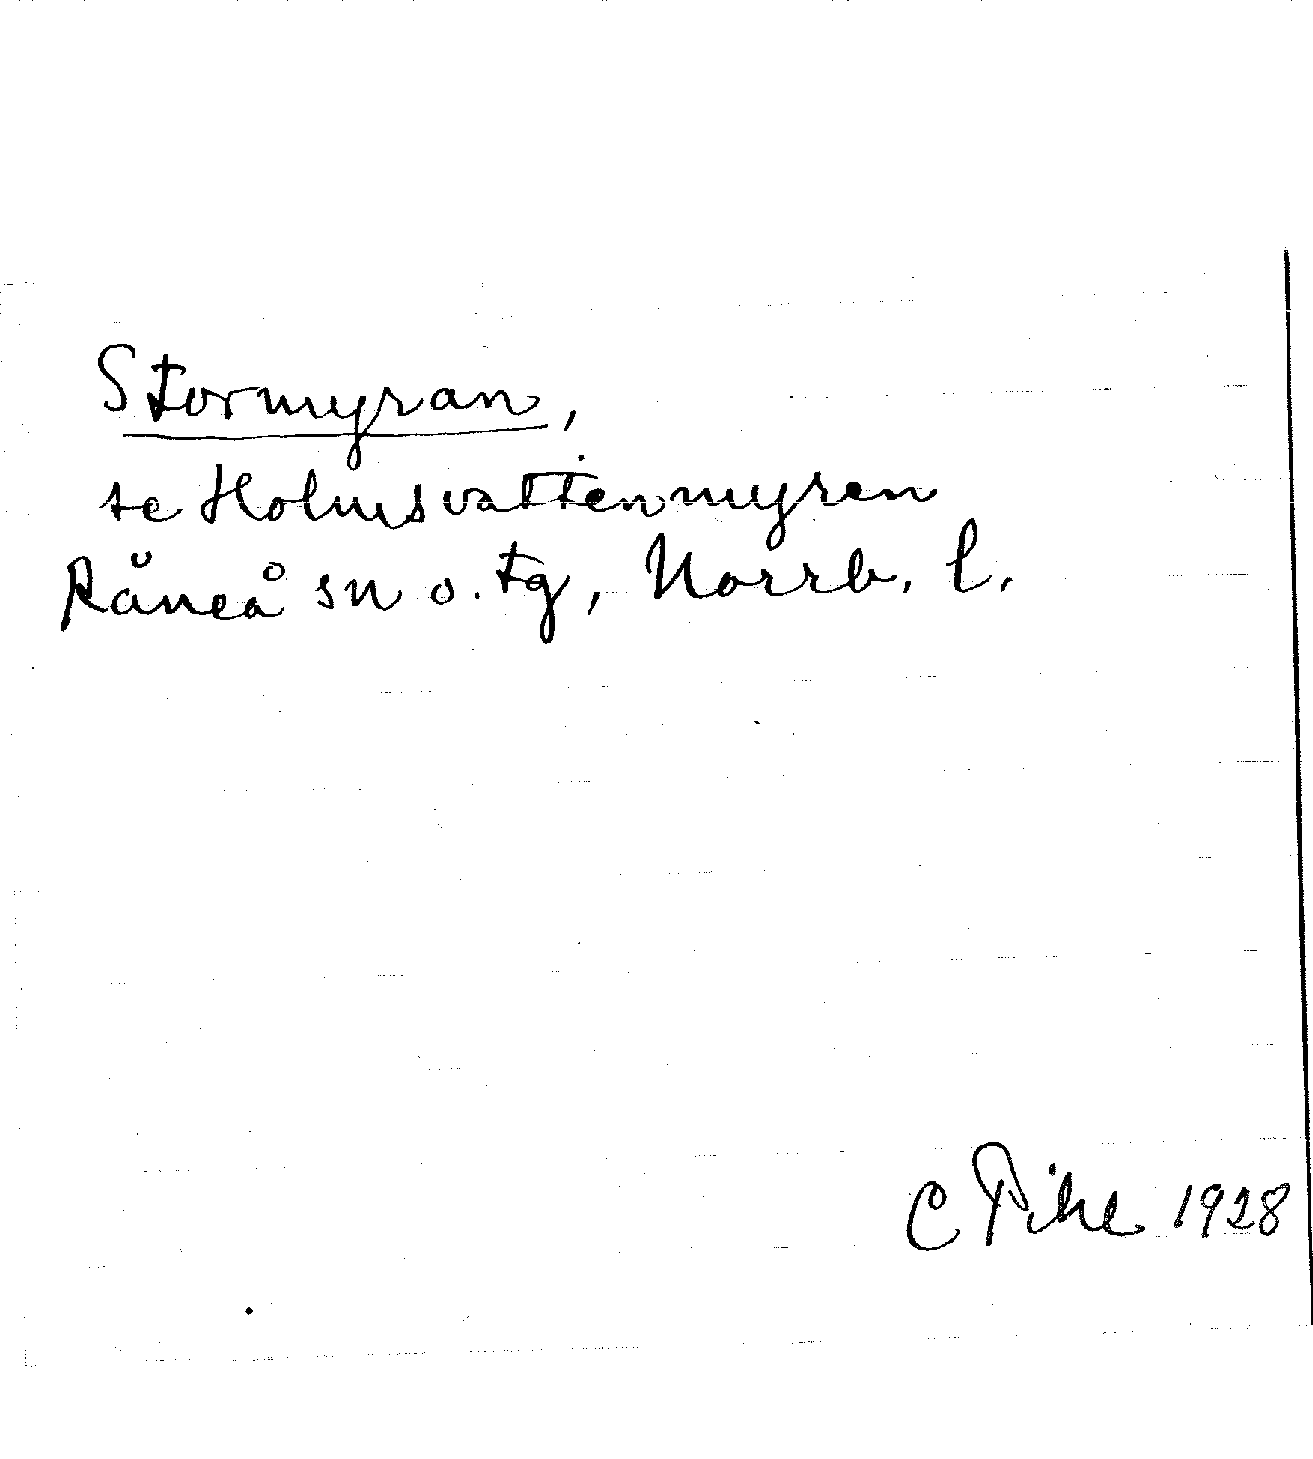 Stormyran,
se Holmsvattenmyren
Råneå sn o. tg, Norrb. l.
C Pihl 1928